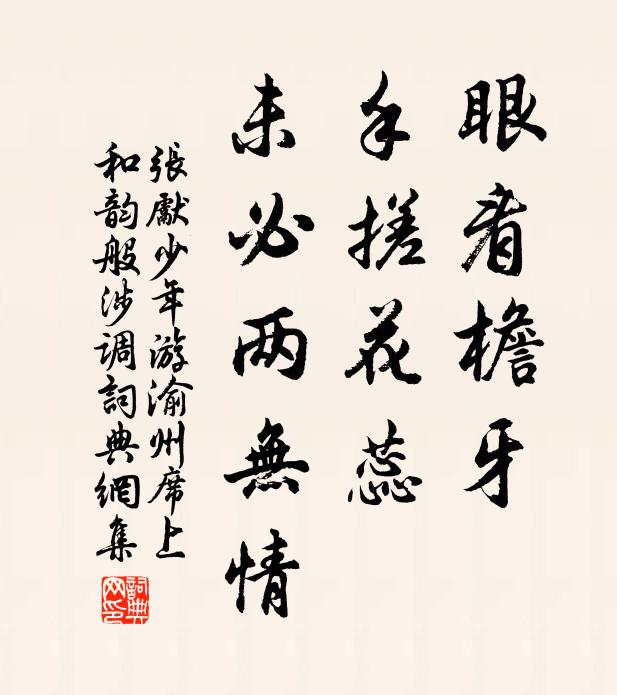 眼看檐牙
手搓花蕊
未必两無情
張獻少年游渝州席上
和韵般涉调詞典網集
詞典網印